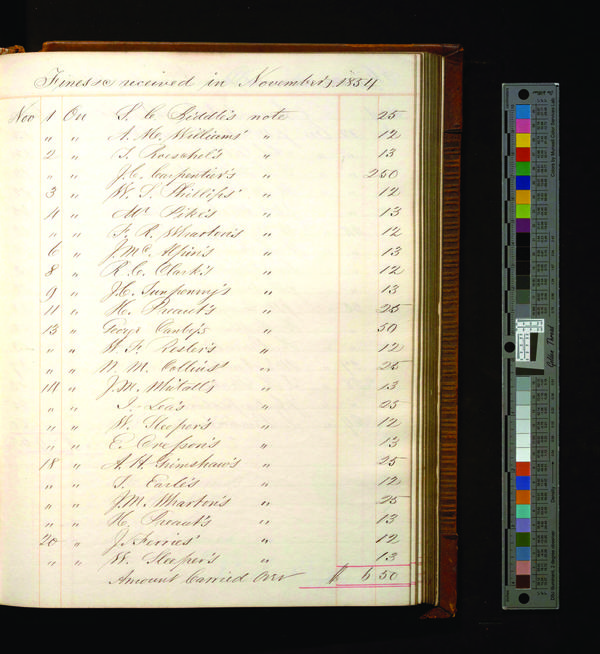 Fines &c received in November, 1854
Nov 1 On S. C. Biddle's note 25
" " A. Mc. Williams' " 12
2 " S. Roeschel's " 13
" " J. C. Carpentier's " 2 50
3 " W. S. Phillips' " 12
4 " Mr Pike's " 13
" " F. R. Wharton's " 12
6 " J. Mc. Alpin's " 13
8 " R. C. Clark's " 12
9 " J. C. " 13
11 " H. Preaut's " 25
13 " George Canby's " 50
" " W. F. Rester's " 12
" " N. M. Collins' " 25
14 " J. M. Mutall's " 13
" " I. Lea's " 25
" " W. Sleeper's " 12
" " E. Cresson's " 13
18 " A. H. Grimshaw's " 25
" " S. Earle's " 12
" " J. M. Wharton's " 25
" " H. Preaut's " 13
20 " J. Forries' " 12
" " W. Sleeper's " 13
Amount Carried Over $ 6 50